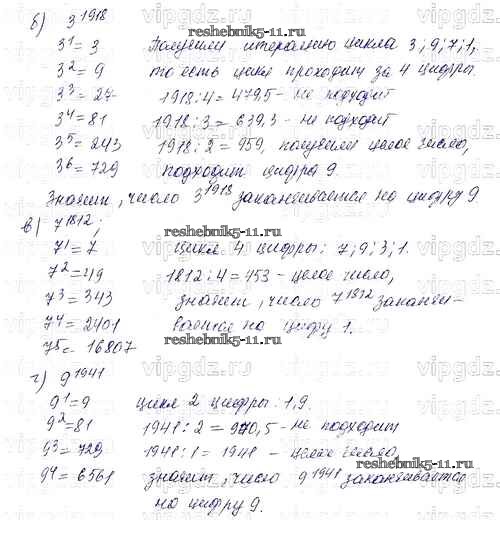 б) 3^1918
reshebnik5-11.ru
3^1 = 3 Получаем итерацию цикла 3; 9; 7; 1,
3^2 = 9 то есть цикл проходит за 4 цифры.
3^3 = 27 1918:4=479,5 - не подходит
3^4 = 81 1918:3=639,3 - не подходит
3^5 = 243 1918:2=959, получаем целое число,
3^6 = 729 подходит цифра 9.
Значит, число 3^1918 заканчивается на цифру 9.
в) 7^1812;
reshebnik5-11.ru
7^1 = 7 цикл 4 цифры: 7; 9; 3; 1.
7^2 = 49 1812:4=453 - целое число,
7^3 = 343 значит, число 7^1812 заканчи-
7^4 = 2401 вается на цифру 1.
reshebnik5-11.ru
7^5 = 16807
г) 9^1941
9^1 = 9 цикл 2 цифры: 1, 9.
9^2 = 81 1948:2=970,5 - не подходит
9^3 = 729 1948:1=1948 - целое число,
reshebnik5-11.ru
9^4 = 6561 значит, число 9^1941 заканчивается
на цифру 9.
vipgdz.ru